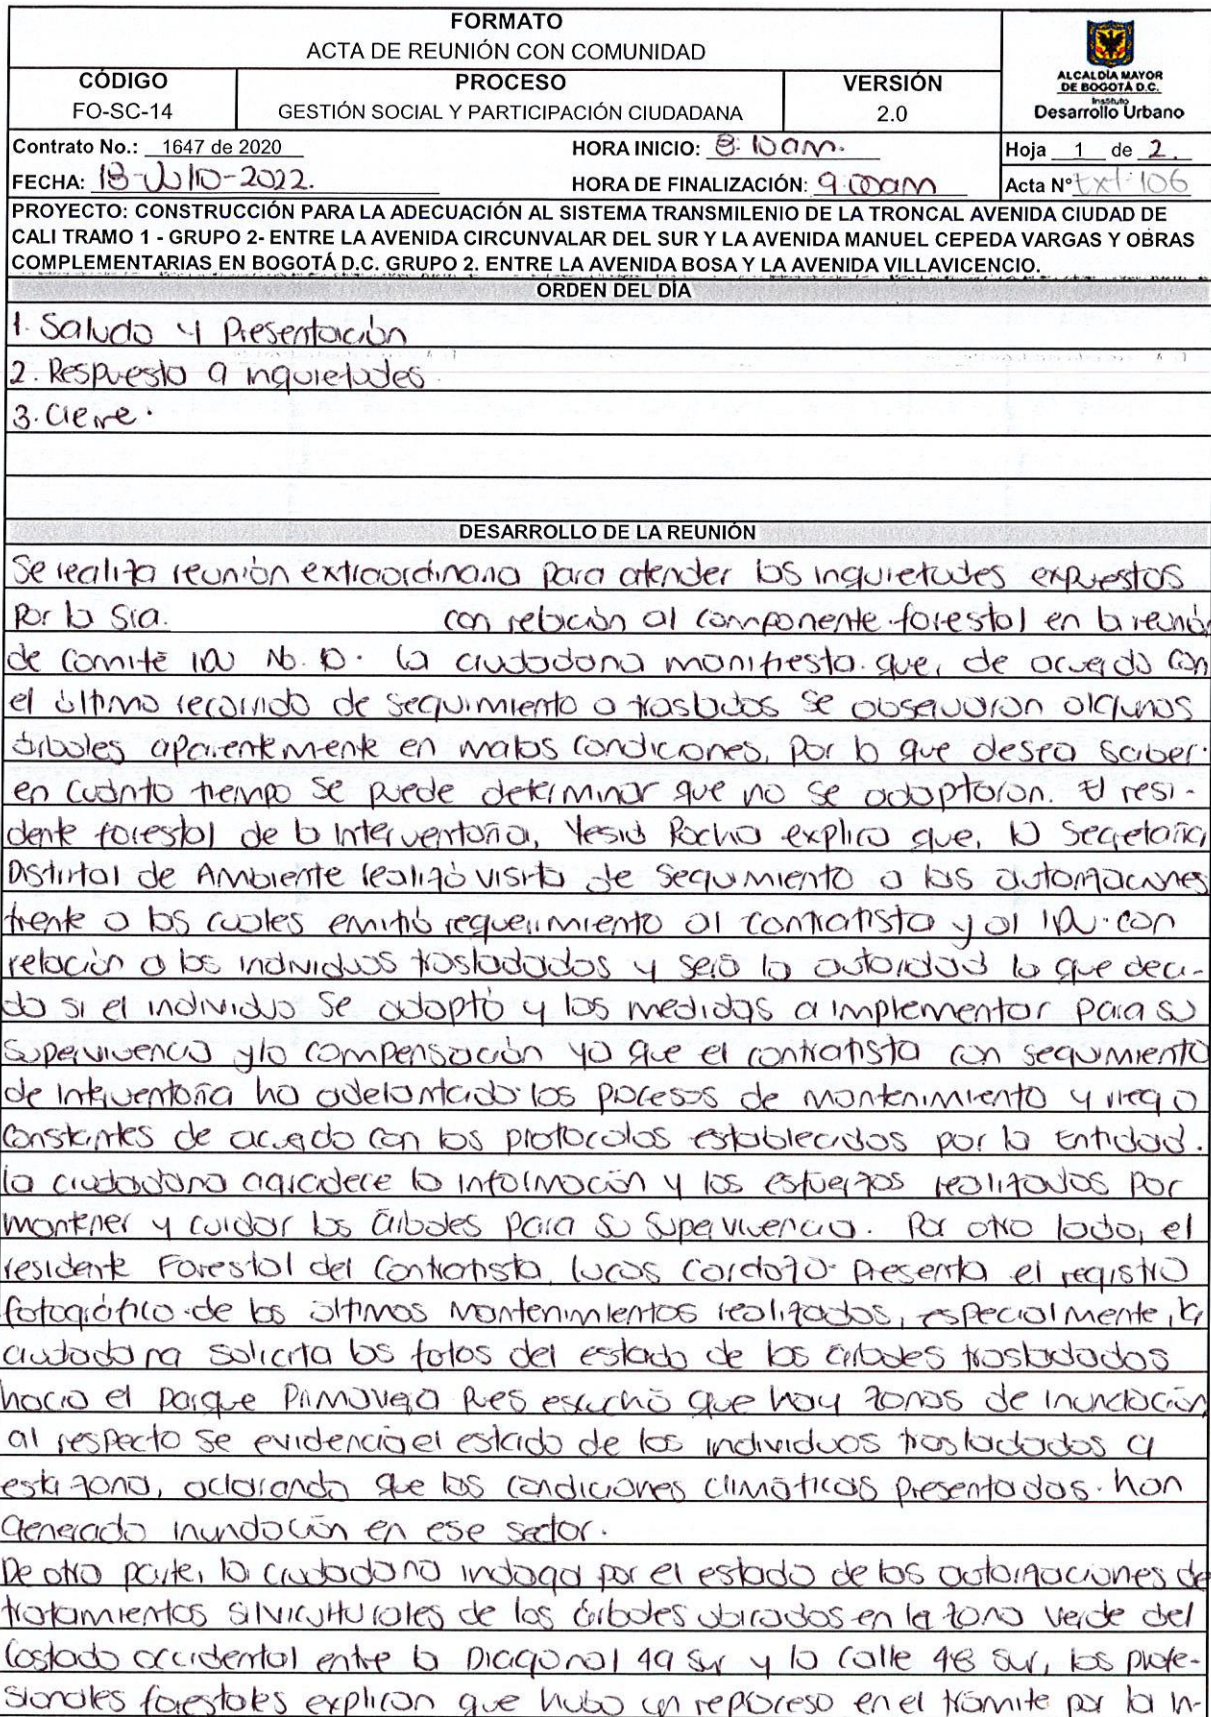 FORMATO
ACTA DE REUNIÓN CON COMUNIDAD
CÓDIGO
FO-SC-14
PROCESO
GESTIÓN SOCIAL Y PARTICIPACIÓN CIUDADANA
VERSIÓN
2.0
ALCALDÍA MAYOR
DE BOGOTÁ D.C.
Instituto
Desarrollo Urbano
Contrato No.: 1647 de 2020
HORA INICIO: 8:10am.
Hoja 1 de 2.
FECHA: 18-Julio-2022.
HORA DE FINALIZACIÓN: 9:00am
Acta N° Ext-106
PROYECTO: CONSTRUCCIÓN PARA LA ADECUACIÓN AL SISTEMA TRANSMILENIO DE LA TRONCAL AVENIDA CIUDAD DE
CALI TRAMO 1 - GRUPO 2- ENTRE LA AVENIDA CIRCUNVALAR DEL SUR Y LA AVENIDA MANUEL CEPEDA VARGAS Y OBRAS
COMPLEMENTARIAS EN BOGOTÁ D.C. GRUPO 2. ENTRE LA AVENIDA BOSA Y LA AVENIDA VILLAVICENCIO.
ORDEN DEL DÍA
1. Saludo y Presentación
2. Respuesta a inquietudes.
3. Cierre.
DESARROLLO DE LA REUNIÓN
Se realiza reunión extraordinaria para atender las inquietudes expuestas
Por la Sra. con relación al componente forestal en la reunión
de Comité IDU No. 10. La ciudadana manifiesta que, de acuerdo con
el último recorrido de seguimiento a traslados se observaron algunos
árboles aparentemente en malas condiciones, por lo que desea saber
en cuánto tiempo se puede determinar que no se adaptaron. El resi-
dente forestal de la Interventoría, Yesid Pacho explica que, la Secretaría
Distrital de Ambiente realizó visita de seguimiento a las autorizaciones
frente a los cuales emitió requerimiento al contratista y al IDU con
relación a los individuos trasladados y será la autoridad la que deci-
da si el individuo se adaptó y las medidas a implementar para su
supervivencia y/o compensación ya que el contratista con seguimiento
de Interventoría ha adelantado los procesos de mantenimiento y riego
constantes de acuerdo con los protocolos establecidos por la Entidad.
La ciudadana agradece la información y los esfuerzos realizados por
mantener y cuidar los árboles para su supervivencia. Por otro lado, el
residente Forestal del Contratista Lucas Cardozo presenta el registro
fotográfico de los últimos mantenimientos realizados, especialmente, la
ciudadana solicita las fotos del estado de los árboles trasladados
hacia el Parque Primavera Pues escuchó que hay zonas de inundación
al respecto se evidencia el estado de los individuos trasladados a
esta zona, aclarando que las condiciones climáticas presentadas han
generado inundación en ese sector.
De otra parte, la ciudadana indaga por el estado de las autorizaciones de
tratamientos silviculturales de los árboles ubicados en la zona verde del
Costado occidental entre la Diagonal 49 Sur y la Calle 48 Sur, los profe-
sionales forestales explican que hubo un reproceso en el trámite por la in-